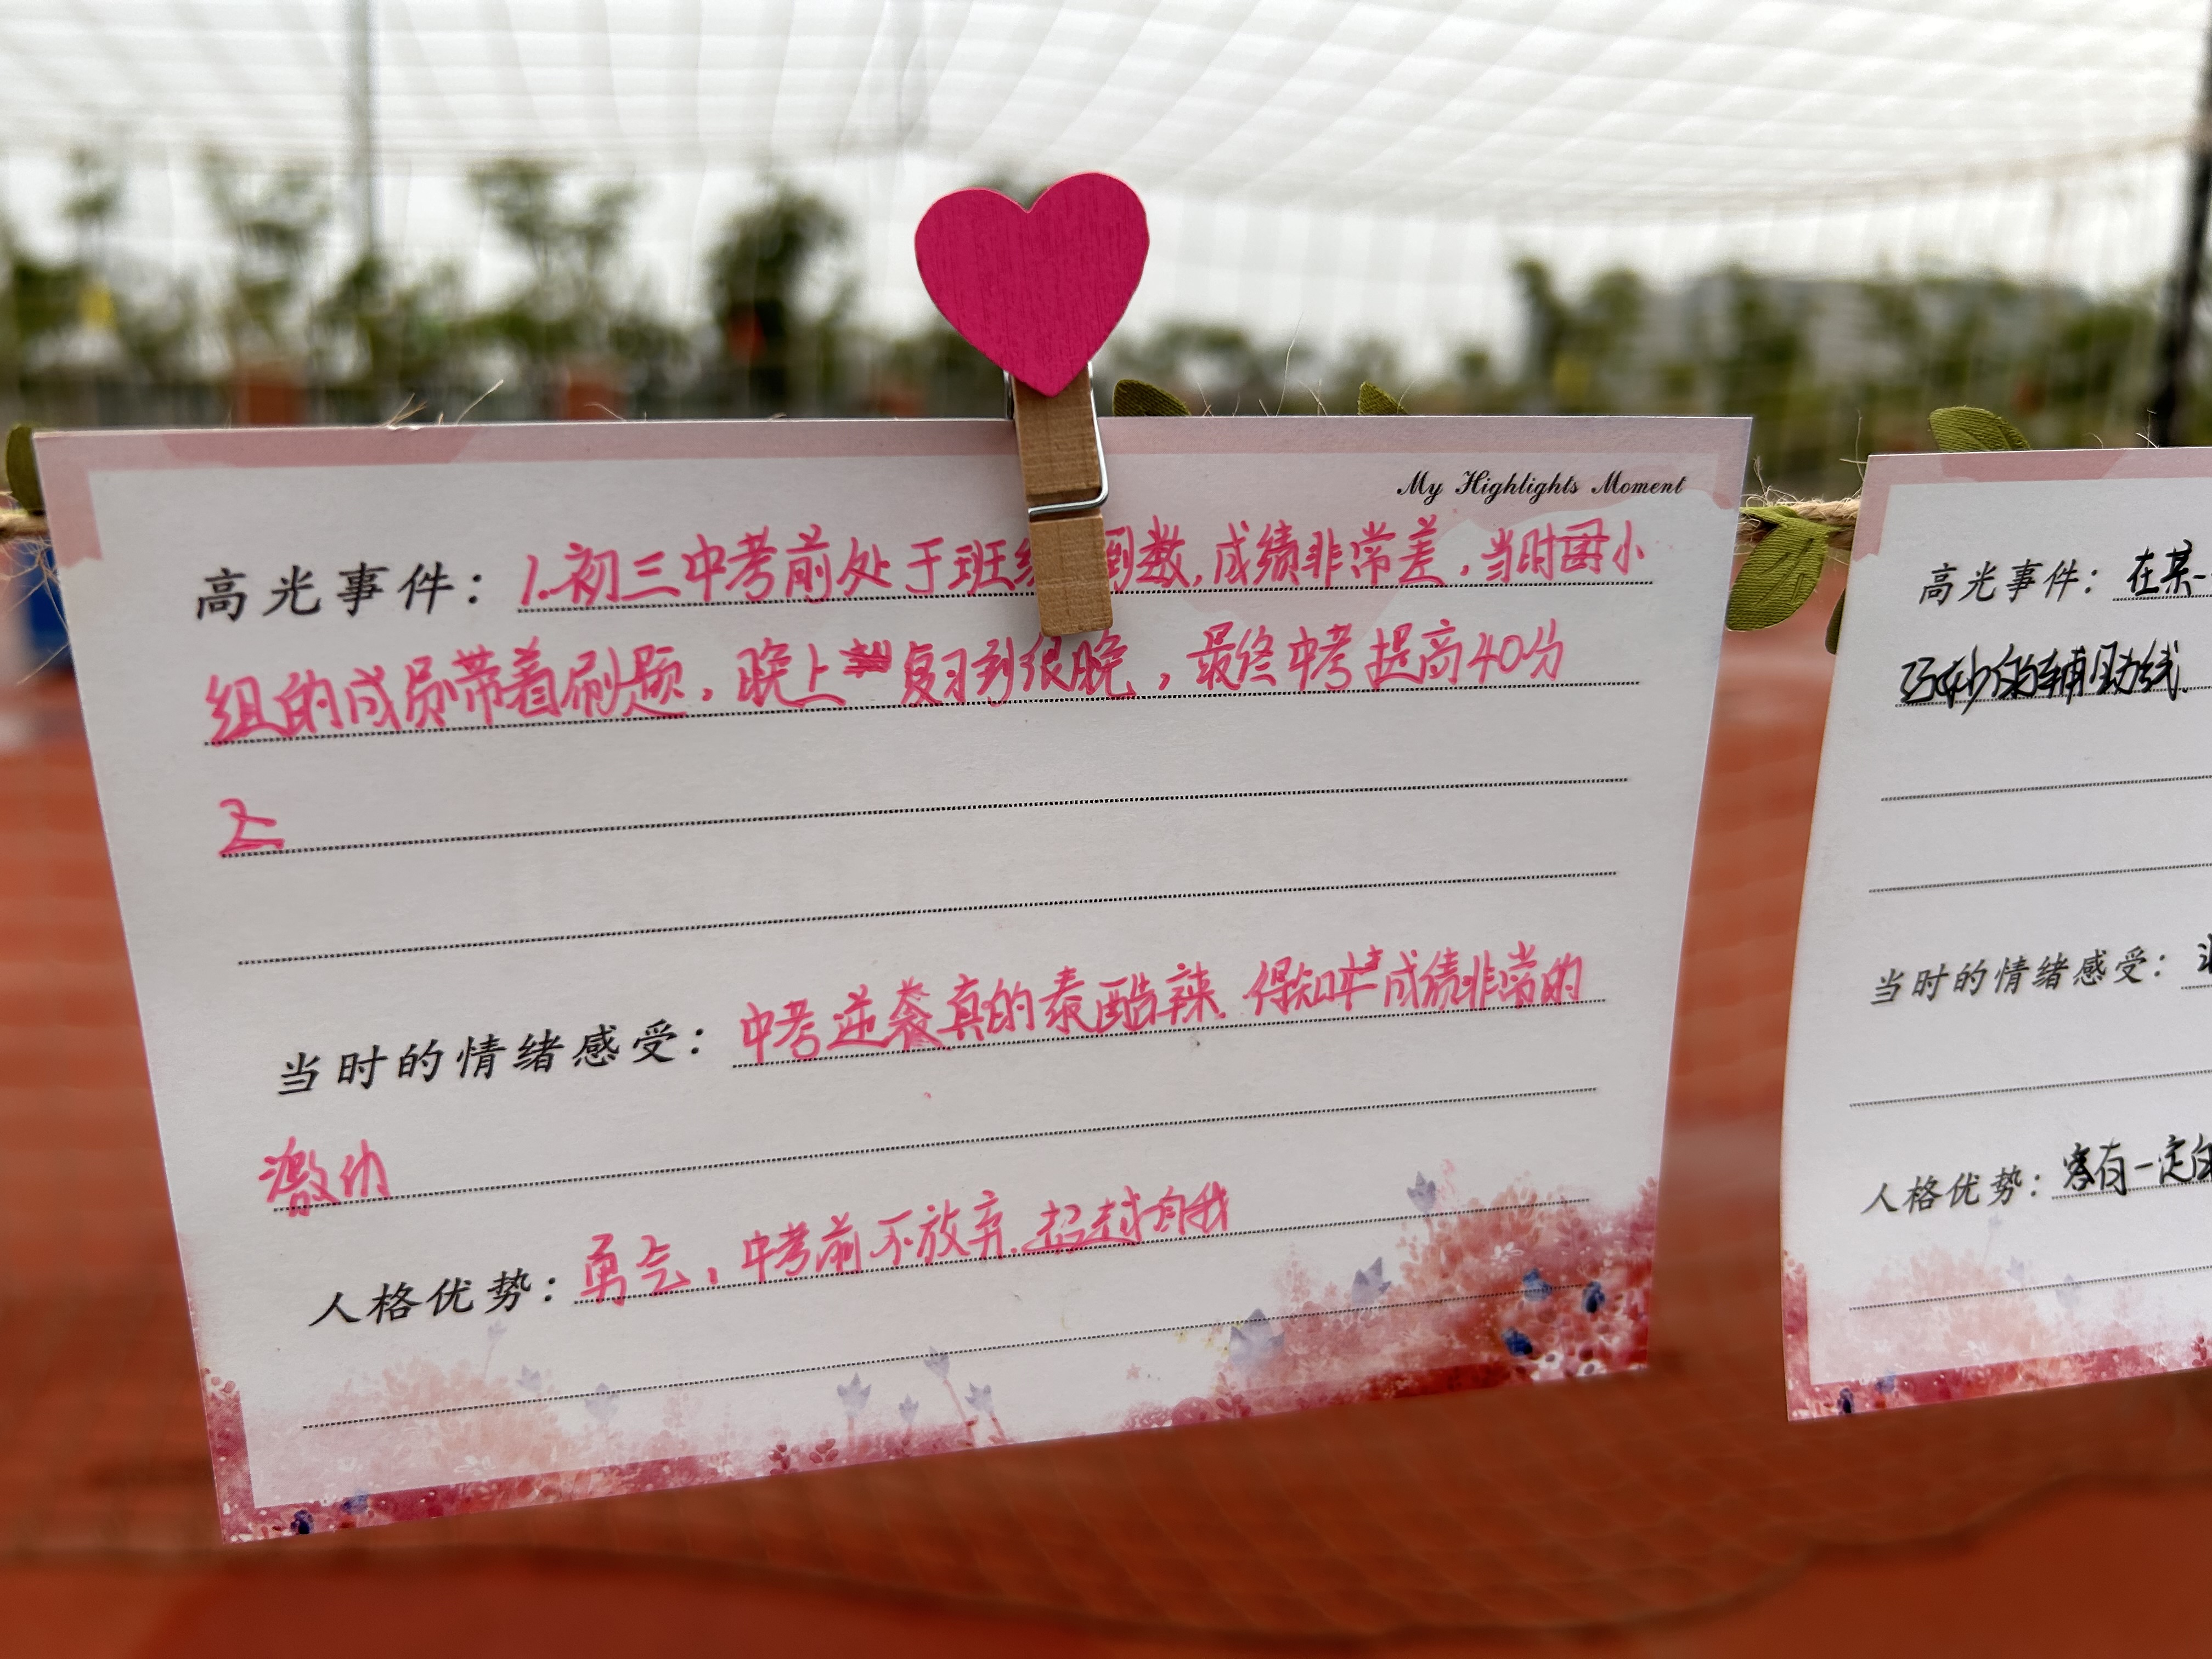 My Highlights Moment
高光事件：1.初三中考前处于班级倒数，成绩非常差，当时因小
组的成员带着刷题，晚上复习到很晚，最终中考提高40分
2
当时的情绪感受：中考逆袭真的泰酷辣，得知成绩非常的
激动
人格优势：勇气，中考前不放弃，超越自我
高光事件：在某一
巧妙的辅助线
当时的情绪感受：
人格优势：